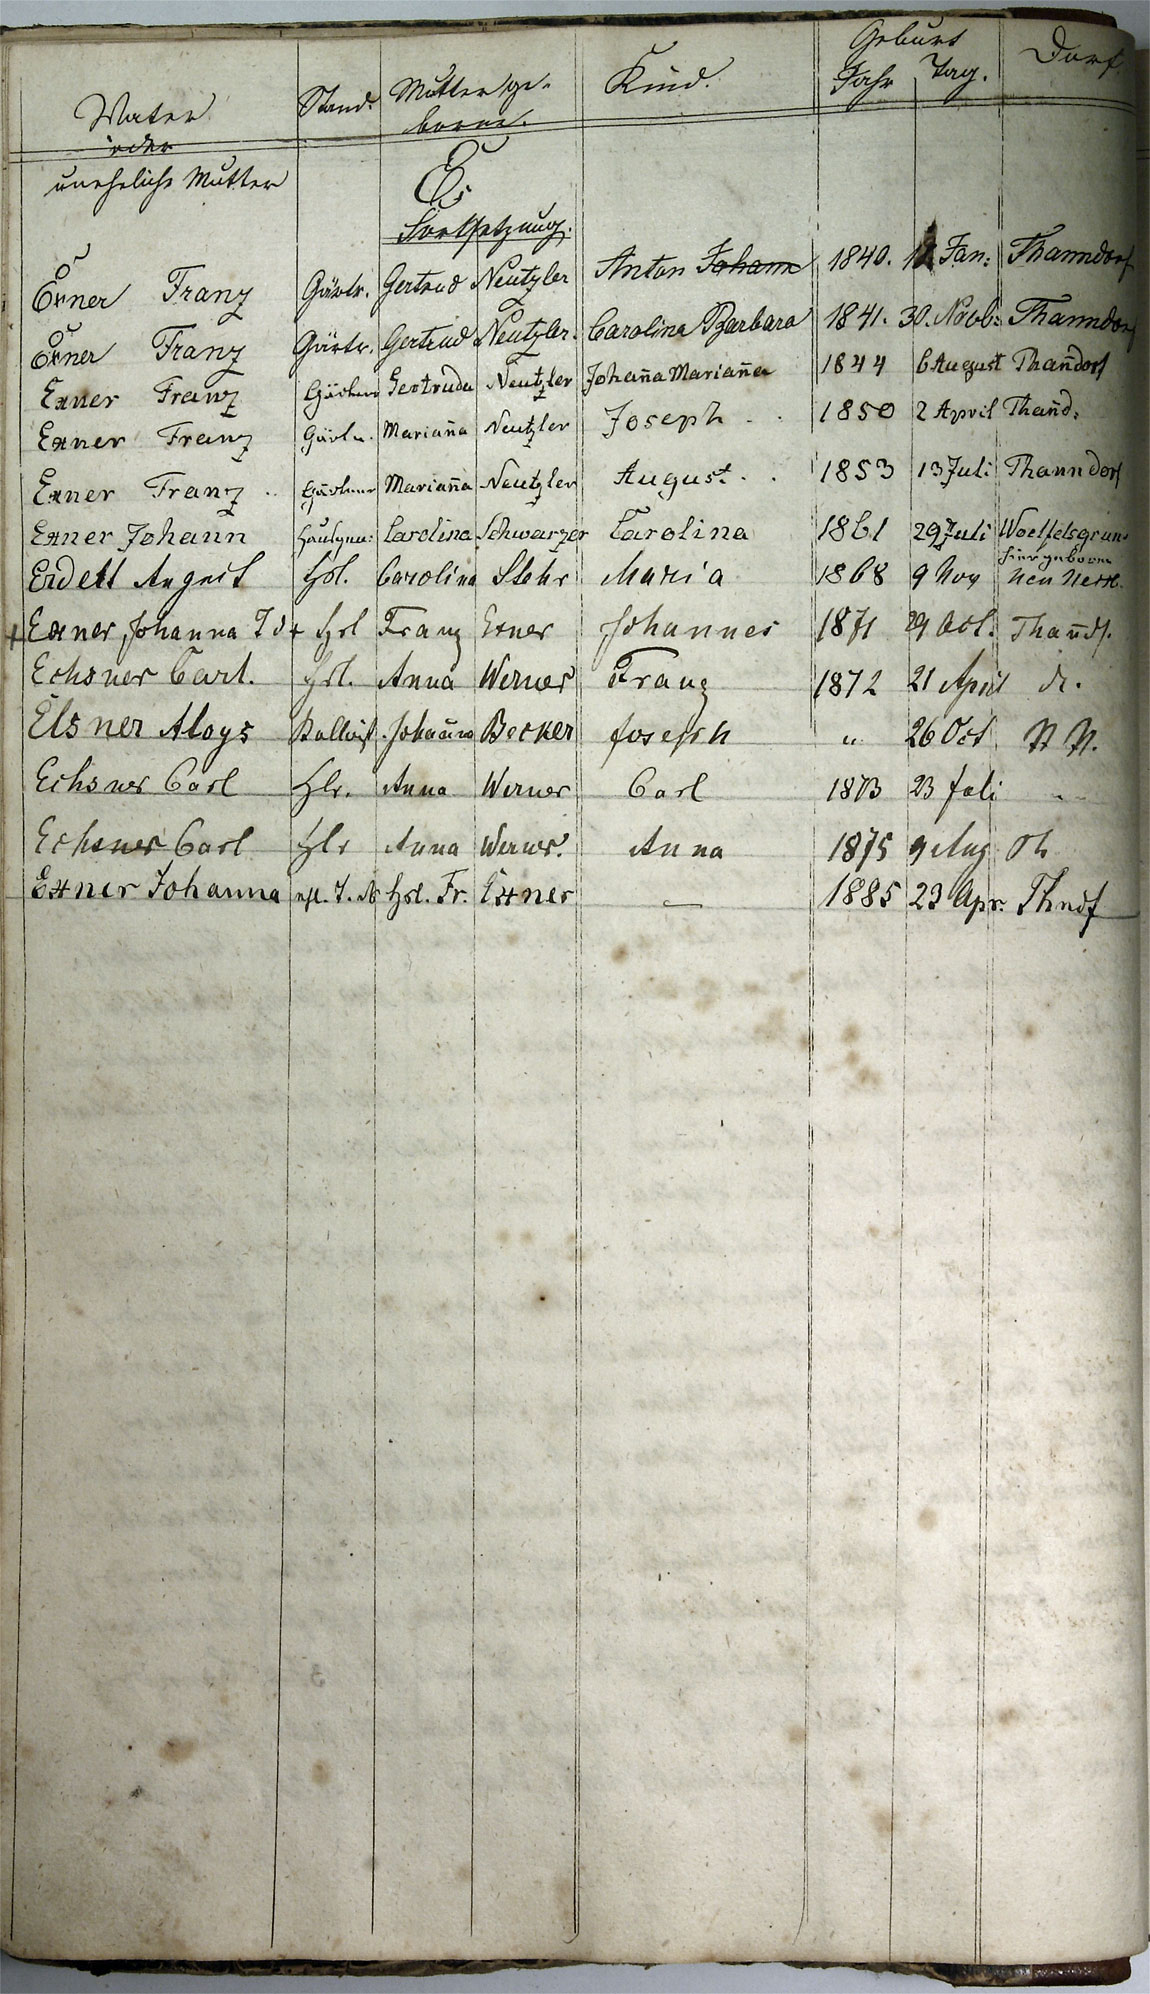 Vater Stand. Mutter ge- Kind. Geburt Dorf
oder borne. Jahr Tag.
uneheliche Mutter
E,
Fortsetzung.
Exner Franz Gärtr. Gertrud Neutzler Anton Johann 1840. Jan: Thanndorf
Exner Franz Gärtr. Gertrud Neutzler. Carolina Barbara 1841. 30. Novb: Thanndorf
Exner Franz Gärtner Gertruda Neutzler Johan̄a Marian̄a 1844 6 August Than̄dorf
Exner Franz Gärtn. Marian̄a Neutzler Joseph 1850 2 April Than̄d.
Exner Franz Gärtner Marian̄a Neutzler August 1853 13 Juli Thanndorf
Exner Johann Carolina Schwarzer Carolina 1861 29 Juli Woelfelsgrun
hier geboren
August Hsl. Carolina Maria 1868 9 Nov Neu
Exner, Johanna Hsl Franz Exner Johannes 1871 29 Oct. Than̄df.
Echsner Carl. Hsl. Anna Werner Franz 1872 21 April dr.
Elsner Aloys Johan̄na Becker Joseph " 26 Oct N N.
Echsner Carl Hlr. Anna Werner Carl 1873 23 Juli "
Echsner Carl Hlr Anna Werner. Anna 1875 9 Aug
Exner Johanna Hsl. Fr. Exner — 1885 23 Apr. Thndf